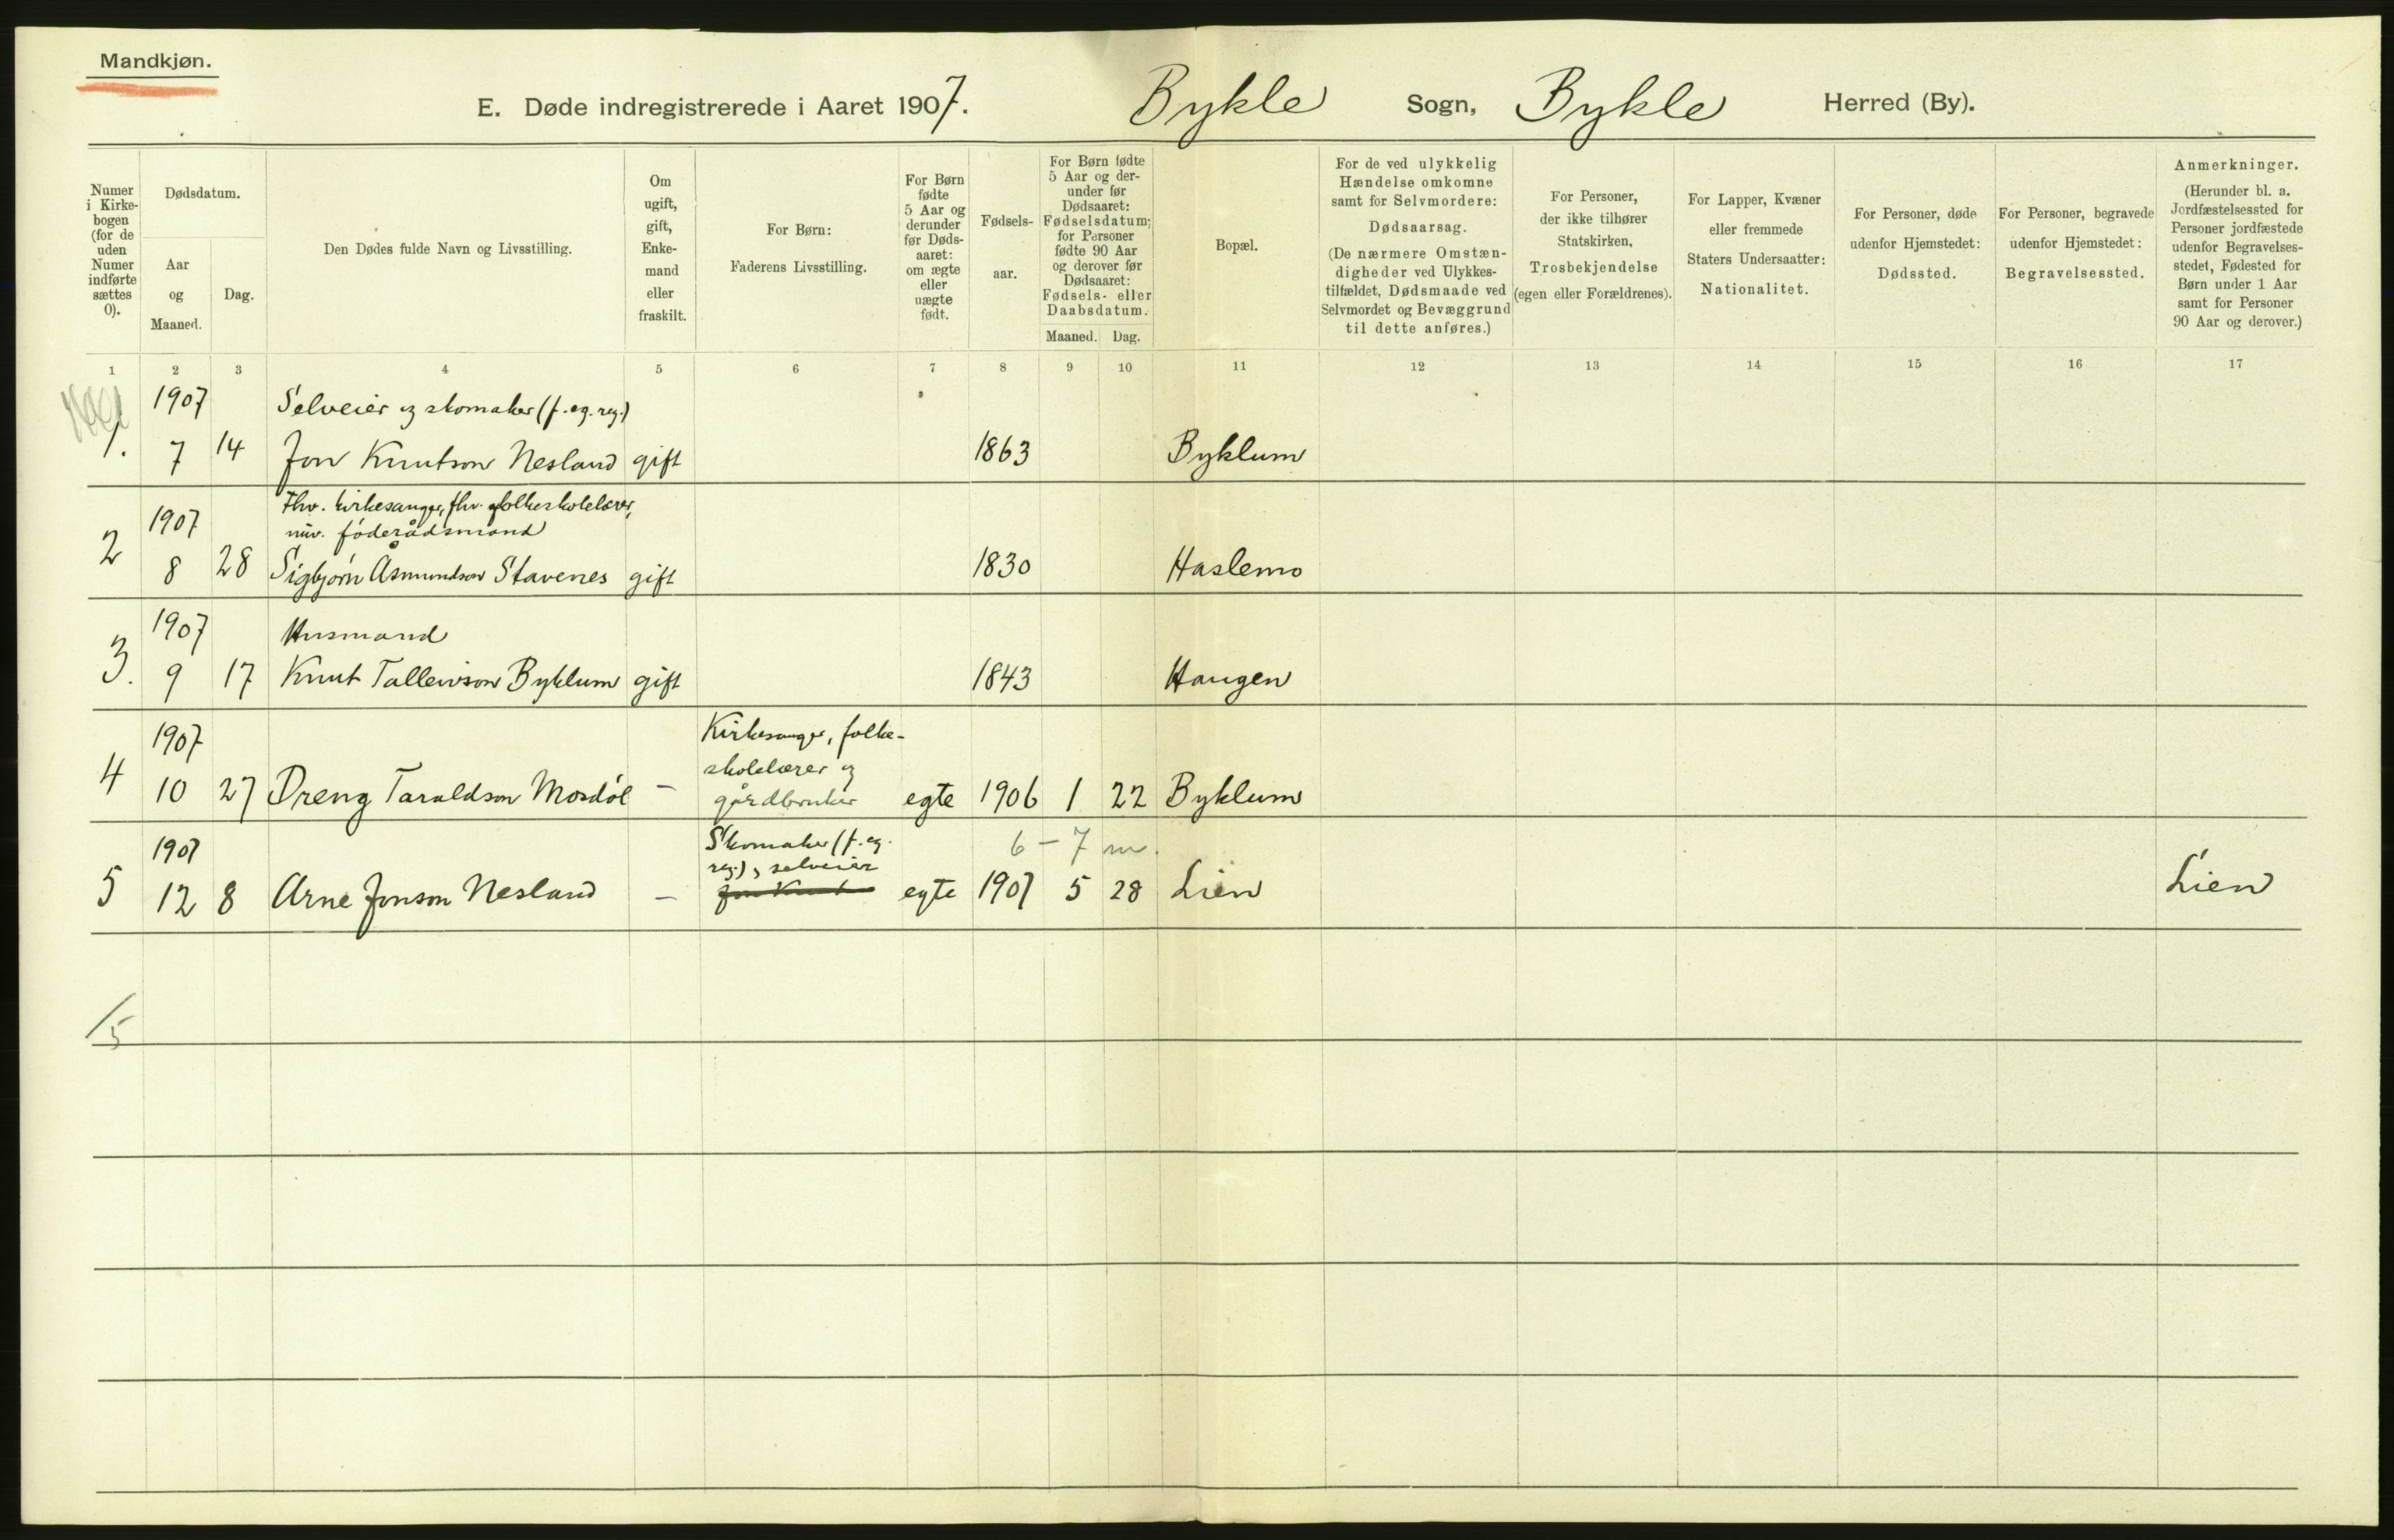 Mandkjøn.
E. Døde indregistrerede i Aaret 1907. Bykle Sogn, Bykle Herred (By).
Numer i Kirke-bogen (for de uden Numer indførte sættes 0).
Dødsdatum.
Aar og Maaned.
Dag.
Den Dødes fulde Navn og Livsstilling.
Om ugift, gift, Enke-mand eller fraskilt.
For Børn:
Faderens Livsstilling.
For Børn fødte 5 Aar og derunder før Døds-aaret: om ægte eller uægte født.
Fødsels-aar.
For Børn fødte 5 Aar og der-under før Dødsaaret: Fødselsdatum; for Personer fødte 90 Aar og derover før Dødsaaret: Fødsels- eller Daabsdatum.
Maaned. Dag.
Bopæl.
For de ved ulykkelig Hændelse omkomne samt for Selvmordere:
Dødsaarsag.
(De nærmere Omstæn-digheder ved Ulykkes-tilfældet, Dødsmaade ved Selvmordet og Bevæggrund til dette anføres.)
For Personer, der ikke tilhører Statskirken, Trosbekjendelse (egen eller Forældrenes).
For Lapper, Kvæner eller fremmede Staters Undersaatter: Nationalitet.
For Personer, døde udenfor Hjemstedet: Dødssted.
For Personer, begravede udenfor Hjemstedet: Begravelsessted.
Anmerkninger.
(Herunder bl. a. Jordfæstelsessted for Personer jordfæstede udenfor Begravelses-stedet, Fødested for Børn under 1 Aar samt for Personer 90 Aar og derover.)
1 2 3 4 5 6 7 8 9 10 11 12 13 14 15 16 17
1907 Selveier og skomaker (f. eg. reg.)
1. 7 14 Jon Knutson Nesland gift 1863 Byklum
Fhv. kirkesanger, fhv. folkeskolelærer,
1907 nuv. føderådsmand
2 8 28 Sigbjørn Åsmundson Stavenes gift 1830 Haslemo
1907 Husmand
3. 9 17 Knut Tallevson Byklum gift 1843 Haugen
1907 Kirkesanger, folke-
skolelærer og
4 10 27 Dreng Taraldson Mosdøl - gårdbruker egte 1906 1 22 Byklum
1907 Skomaker (f. eg. 6 - 7 m.
reg.), selveier
5 12 8 Arne Jonson Nesland - Jon Knut egte 1907 5 28 Lien Lien
/5